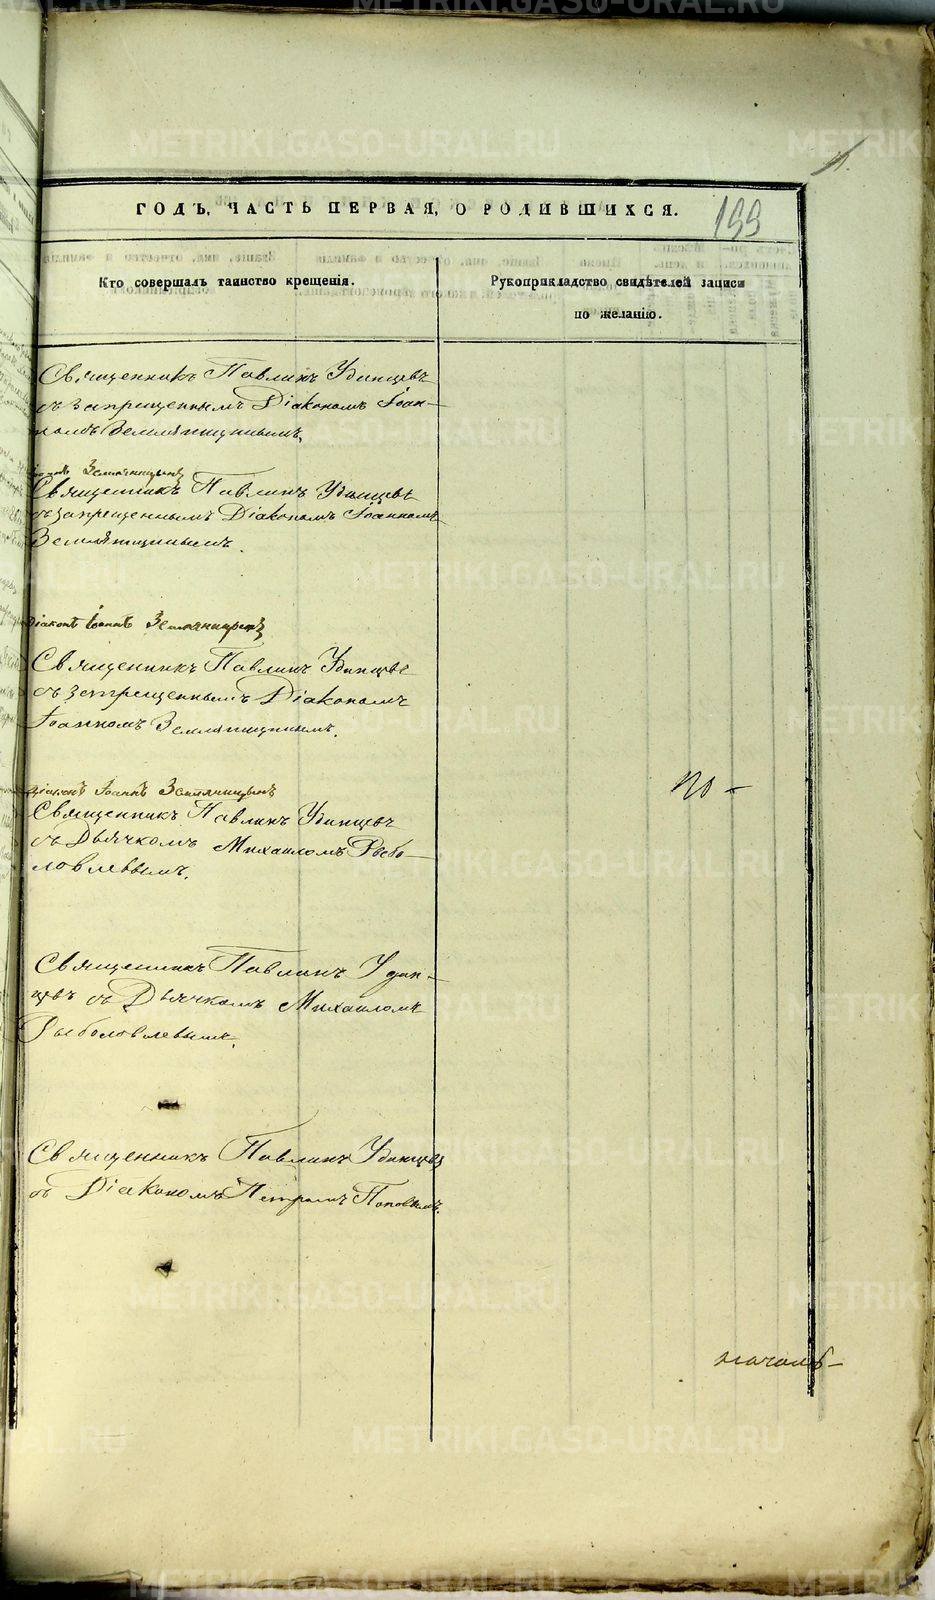 ГОДЪ, ЧАСТЬ ПЕРВАЯ, О РОДИВШИХСЯ.
199
Кто совершалъ таинство крещенія.
Рукоприкладство свидѣтелей записи
по желанію.
Священникъ Павлинъ Удинцевъ
съ запрещеннымъ Діакономъ Іоан-
номъ Земляницынымъ.
Іоаннъ Земляницынъ
Священникъ Павлинъ Удинцевъ
съ запрещеннымъ Діакономъ Іоанномъ
Земляницынымъ.
Діаконъ Іоаннъ Земляницынъ
Священникъ Павлинъ Удинцевъ
съ запрещеннымъ Діакономъ
Іоанномъ Земляницынымъ.
Діаконъ Іоаннъ Земляницынъ
Священникъ Павлинъ Удинцевъ
съ Дьячкомъ Михаиломъ Рыбо-
ловлевымъ.
по-
Священникъ Павлинъ Удин-
цевъ съ Дьячкомъ Михаиломъ
Рыболовлевымъ.
Священникъ Павлинъ Удинцевъ
съ Діакономъ Петромъ Поповымъ.
METRIKI.GASO-URAL.RU